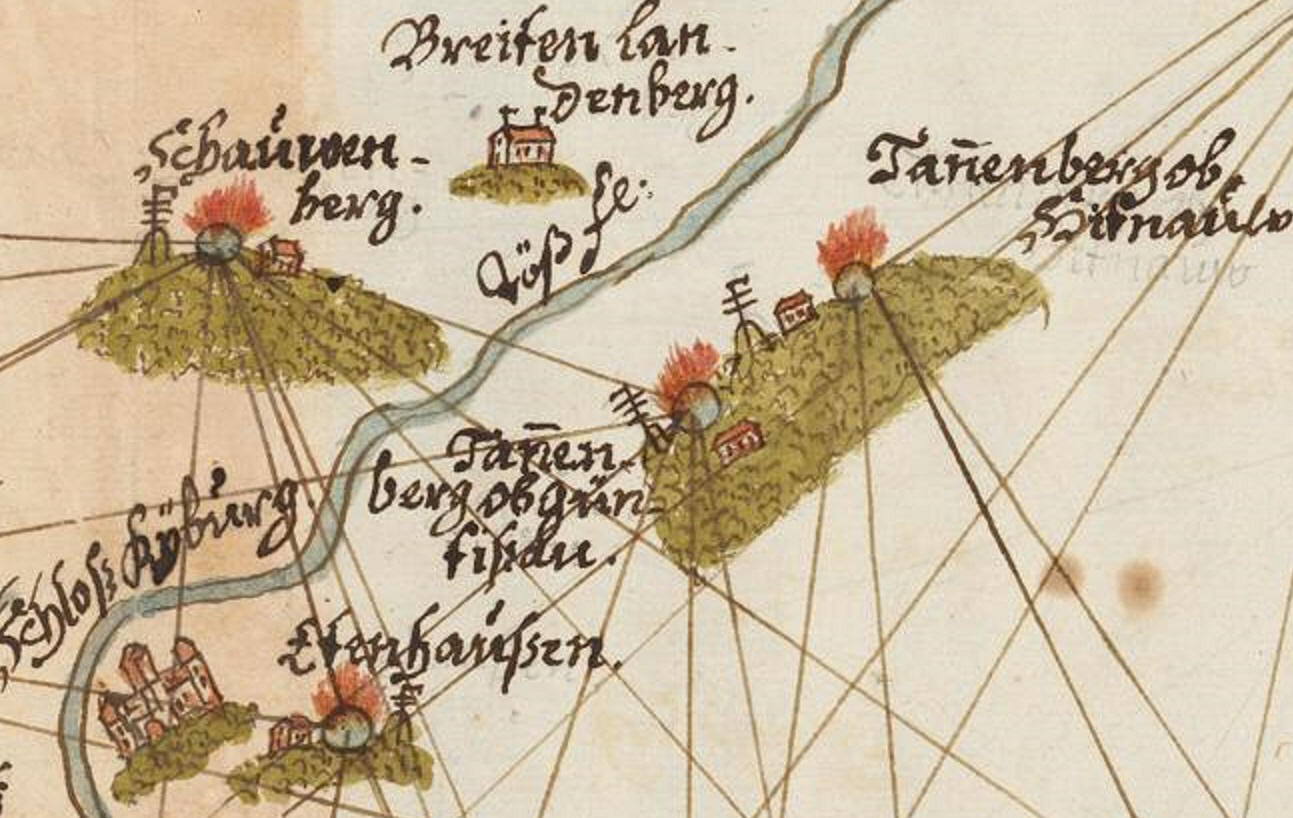 Breiten lan-
denberg.
Schauwen-
berg.
Töß fl:
Tañenberg ob
Hitnauw
Tañen-
berg ob gün-
tisau.
Schloß Kÿburg.
Etenhaußen.